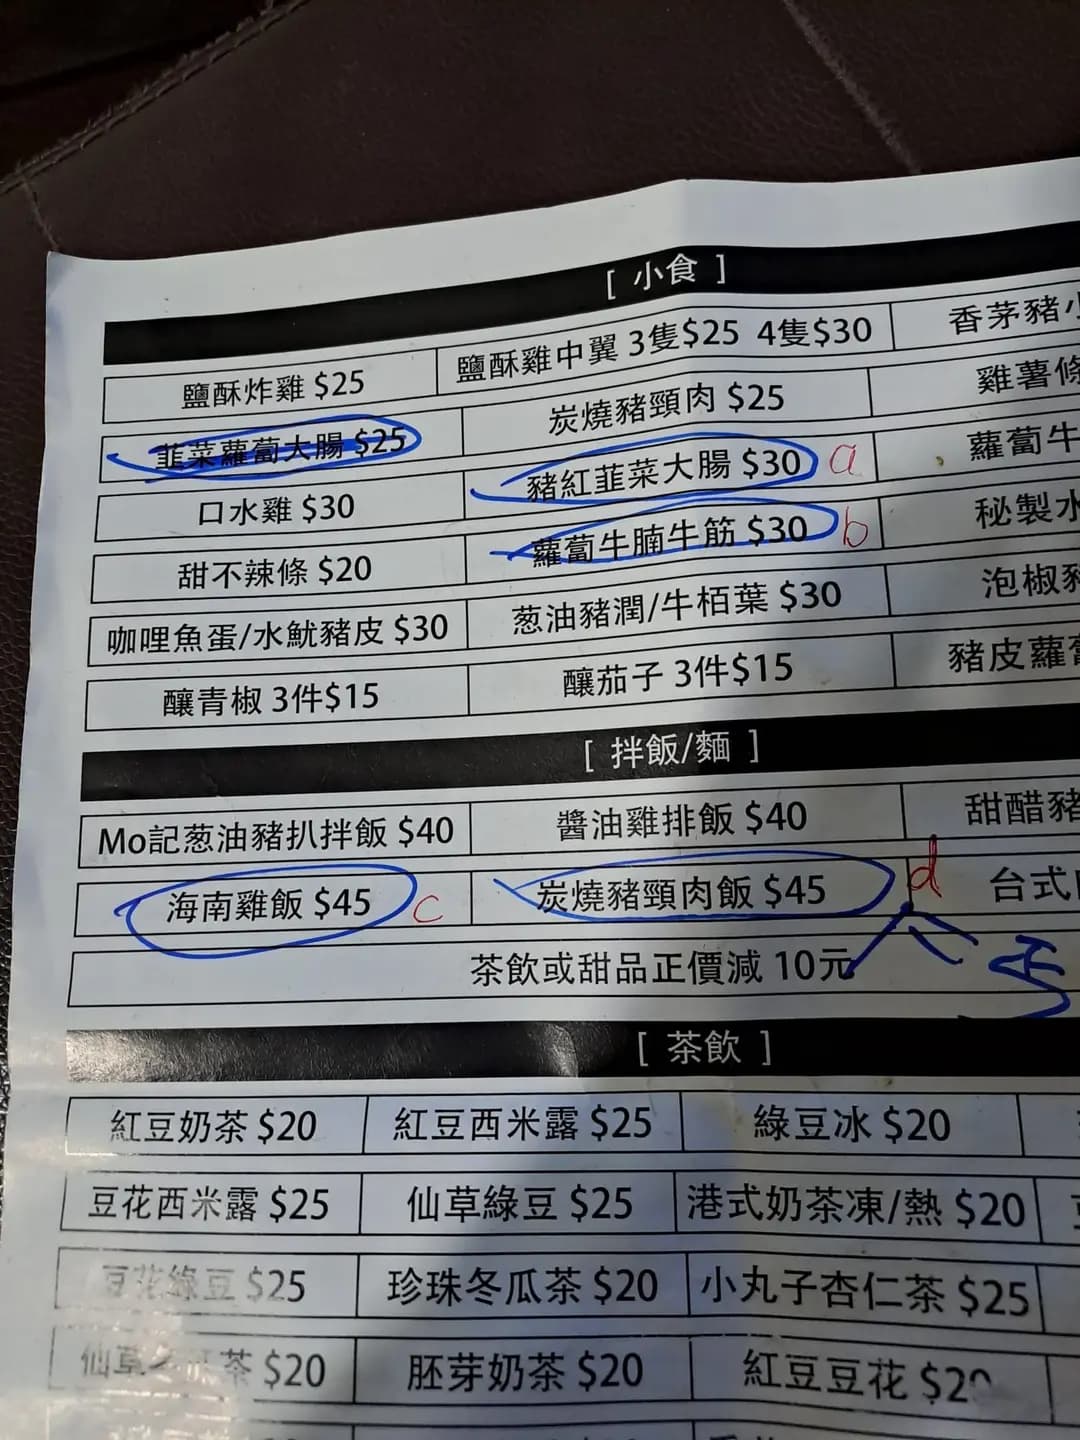 [ 小食 ]
鹽酥炸雞 $25 鹽酥雞中翼 3隻$25 4隻$30 香茅豬
韮菜蘿蔔大腸 $25 炭燒豬頸肉 $25 雞薯條
口水雞 $30 豬紅韮菜大腸 $30 a 蘿蔔牛
甜不辣條 $20 蘿蔔牛腩牛筋 $30 b 秘製水
咖哩魚蛋/水魷豬皮 $30 葱油豬潤/牛栢葉 $30 泡椒豬
釀青椒 3件$15 釀茄子 3件$15 豬皮蘿蔔
[ 拌飯/麵 ]
Mo記葱油豬扒拌飯 $40 醬油雞排飯 $40 甜醋豬
海南雞飯 $45 c 炭燒豬頸肉飯 $45 d 台式
茶飲或甜品正價減 10元
[ 茶飲 ]
紅豆奶茶 $20 紅豆西米露 $25 綠豆冰 $20
豆花西米露 $25 仙草綠豆 $25 港式奶茶凍/熱 $20
豆花綠豆 $25 珍珠冬瓜茶 $20 小丸子杏仁茶 $25
仙草冬瓜茶 $20 胚芽奶茶 $20 紅豆豆花 $20